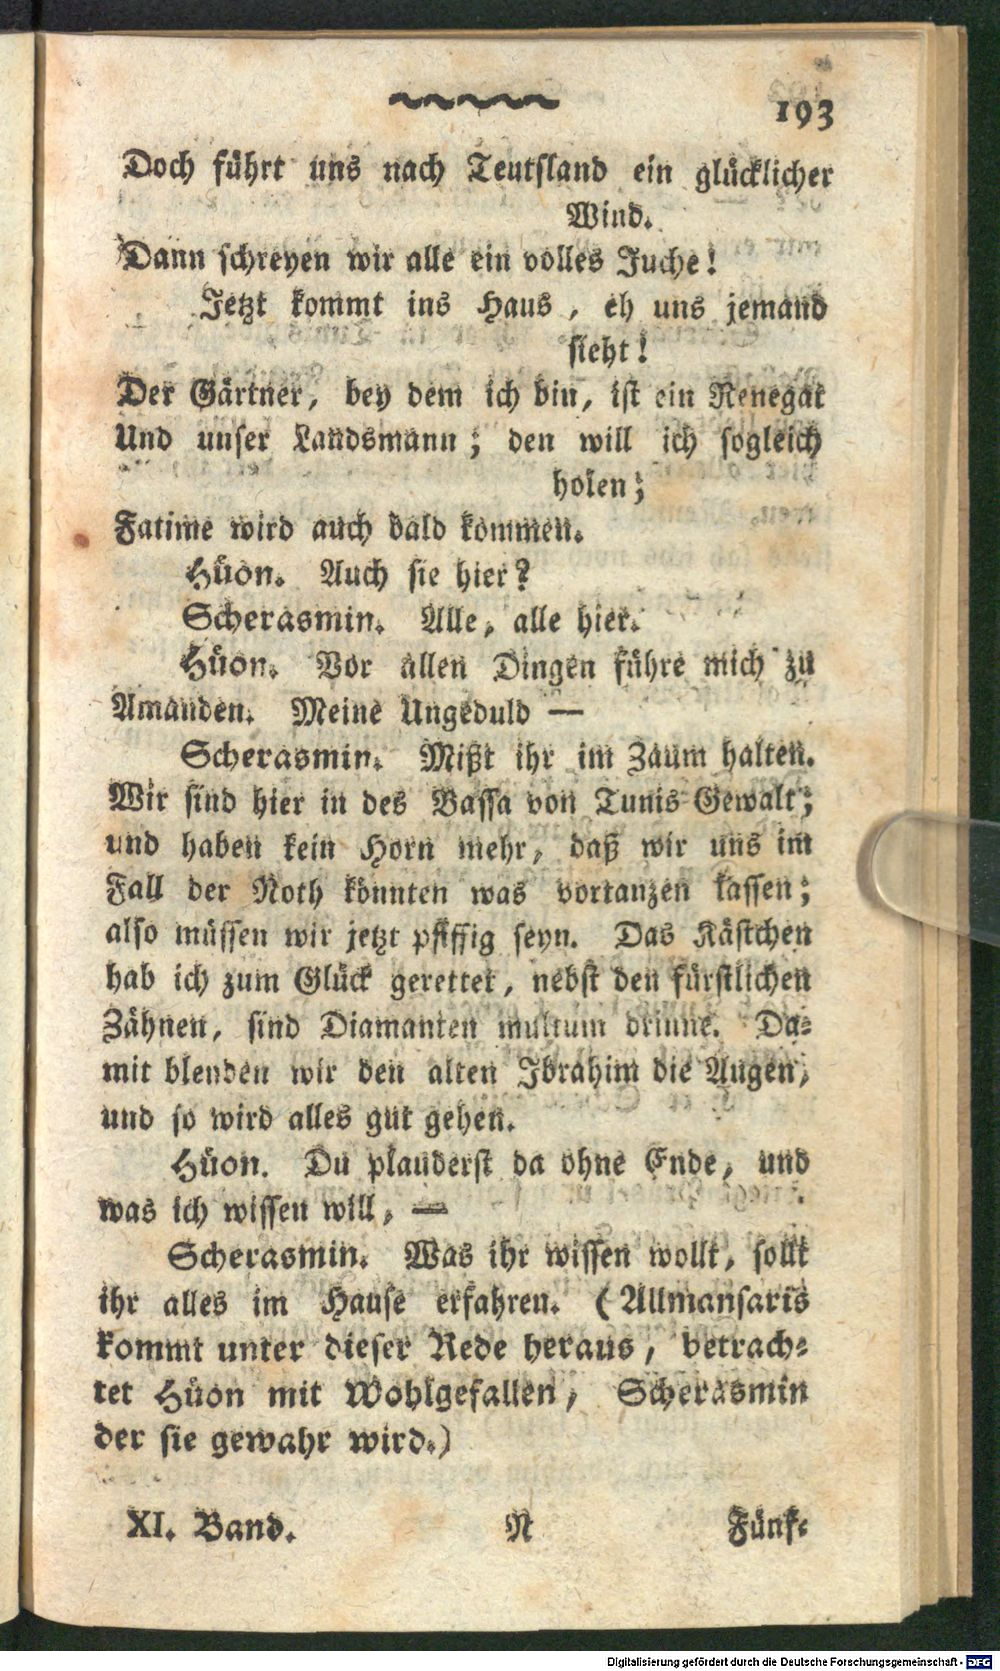 193
Doch führt uns nach Teutsland ein glücklicher
Wind.
Dann schreyen wir alle ein volles Juche!
Jetzt kommt ins Haus, eh uns jemand
sieht!
Der Gärtner, bey dem ich bin, ist ein Renegat
Und unser Landsmann; den will ich sogleich
holen;
Fatime wird auch bald kommen.
Hüon. Auch sie hier?
Scherasmin. Alle, alle hier.
Hüon. Vor allen Dingen führe mich zu
Amanden. Meine Ungeduld —
Scherasmin. Mißt ihr im Zaum halten.
Wir sind hier in des Bassa von Tunis Gewalt;
und haben kein Horn mehr, daß wir uns im
Fall der Noth könnten was vortanzen lassen;
also müssen wir jetzt pfiffig seyn. Das Kästchen
hab ich zum Glück gerettet, nebst den fürstlichen
Zähnen, sind Diamanten multum drinne. Da-
mit blenden wir den alten Ibrahim die Augen,
und so wird alles gut gehen.
Hüon. Du plauderst da ohne Ende, und
was ich wissen will, —
Scherasmin. Was ihr wissen wollt, sollt
ihr alles im Hause erfahren. (Allmansaris
kommt unter dieser Rede heraus, betrach-
tet Hüon mit Wohlgefallen, Scherasmin
der sie gewahr wird.)
XI. Band. N Fünf-
Digitalisierung gefördert durch die Deutsche Forschungsgemeinschaft - DFG